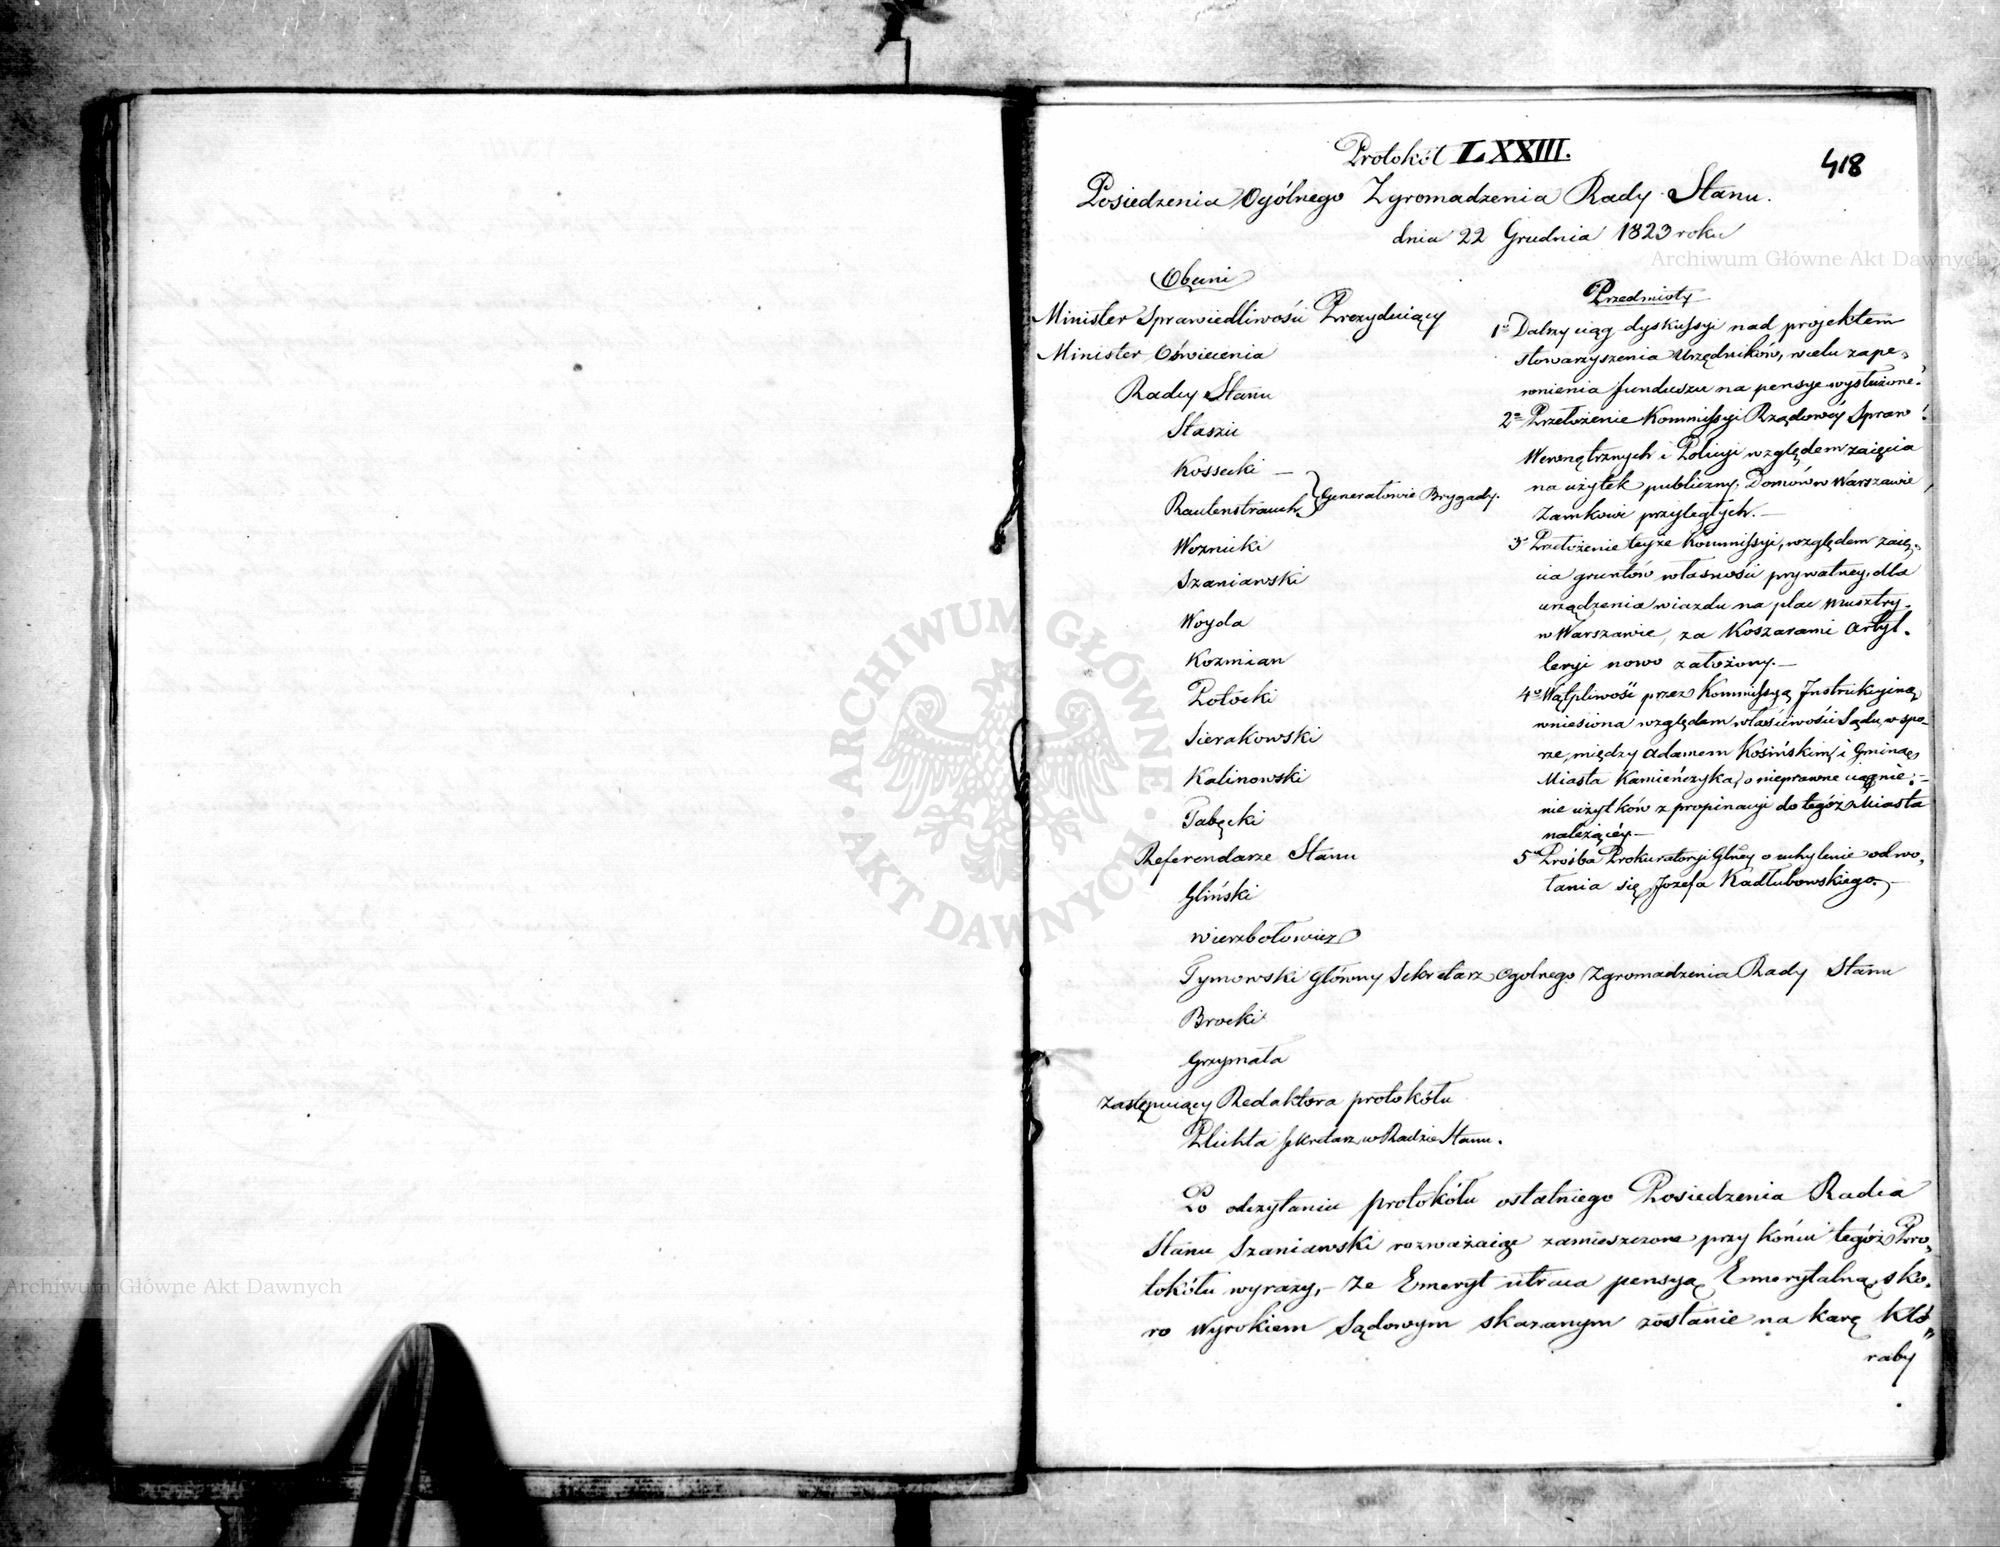 418
Protokół LXXIII.
Posiedzenia Ogólnego Zgromadzenia Rady Stanu.
dnia 22 Grudnia 1823 roku
Obecni
Minister Sprawiedliwości Prezyduiący
Minister Oświecenia
Radcy Stanu
Staszic
Kossecki —
Rautenstrauch } Generałowie Brygady.
Woznicki
Szaniawski
Woyda
Kozmian
Potocki
Sierakowski
Kalinowski
Tabęcki
Referendarze Stanu
Gliński
Wierzbołowicz
Tymowski Główny Sekretarz Ogolnego Zgromadzenia Rady Stanu
Brocki
Grzymała
Zastępuiący Redaktora protokółu
Plichta Sekretarz w Radzie Stanu.
Przedmioty
1o Dalszy ciąg dyskussyi nad projektem
stowarzyszenia Urzędników, w celu zape-
wnienia funduszu na pensye wysłużone.
2o Przełożenie Kommissyi Rządowey Spraw
Wewnętrznych i Policyi względem zaięcia
na użytek publiczny, Domów w Warszawie
Zamkowi przyległych.—
3o Przełożenie teyże Kommissyi, względem zaię-
cia gruntów własności prywatney, dla
urządzenia wiazdu na plac musztry
w Warszawie, za Koszarami Artyl-
leryi nowo założony.—
4o Wątpliwość przez Kommissyą Instrukcyiną
wniesiona względem właściwości Sądu, w spo-
rze, między Adamem Kosińskim, i Gminą
Miasta Kamieńczyka, o nieprawne ciągnie-
nie użytków z propinacyi do tegóż Miasta
należącéy.—
5o Proźba Prokuratoryi Głney o uchylenie odwo-
łania się Jozefa Kadłubowskiego.—
Po odczytaniu protokółu ostatniego Posiedzenia Radca
Stanu Szaniawski rozważaiąc zamieszczone przy końcu tegóż Pro-
tokółu wyrazy,- że Emeryt utraca pensyą Emerytalną, sko-
ro Wyrokiem Sądowym skazanym zostanie na karę któ-
raby
Archiwum Główne Akt Dawnych
Archiwum Główne Akt Dawnych
ARCHIWUM GŁÓWNE · AKT DAWNYCH ·